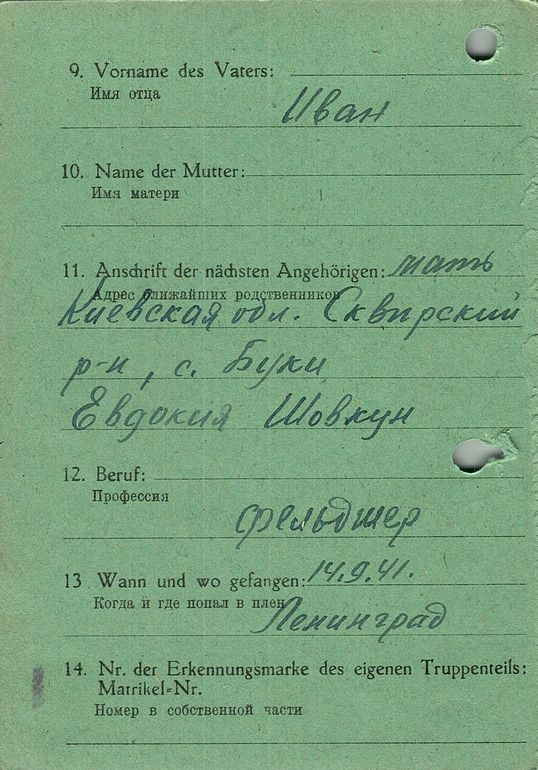 9. Vorname des Vaters:
Имя отца
Иван
10. Name der Mutter:
Имя матери
11. Anschrift der nächsten Angehörigen: мать
Адрес ближайших родственников
Киевская обл. Сквирский
р-н, с. Буки
Евдокия Шовкун
12. Beruf:
Профессия
фельдшер
13 Wann und wo gefangen: 14.9.41.
Когда и где попал в плен
Ленинград
14. Nr. der Erkennungsmarke des eigenen Truppenteils:
Matrikel-Nr.
Номер в собственной части